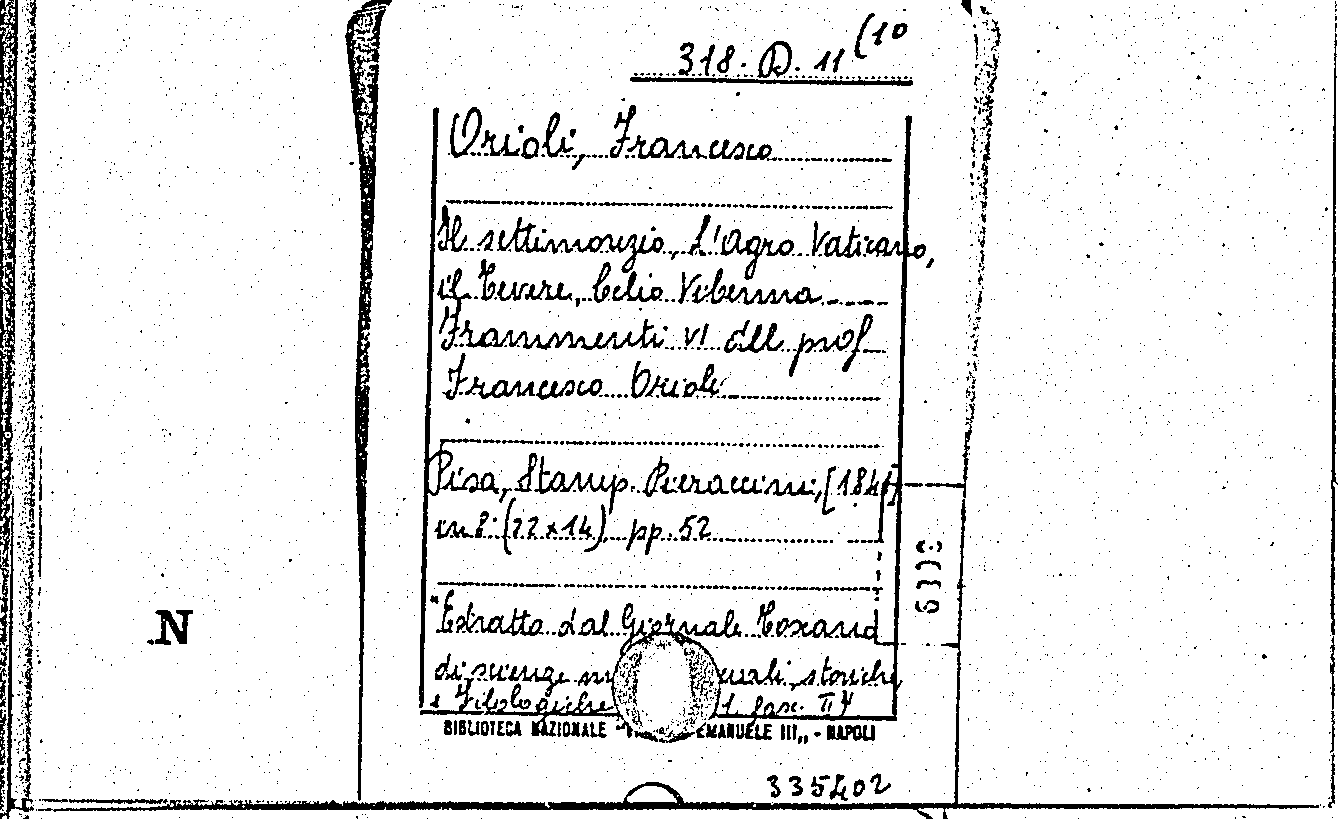 318. D. 11 (10
Orioli, Francesco
Il settimonzio, L'Agro Vaticano,
il Tevere, Celio Vibenna
Frammenti VI del prof
Francesco Orioli
Pisa, Stamp. Pieraccini, [184
in 8° (22 x 14) pp. 52
"Estratto dal Giornale Toscano
di scienze storiche
e Filologiche 1. fasc. II"
BIBLIOTECA NAZIONALE EMANUELE III„ - NAPOLI
335402
N